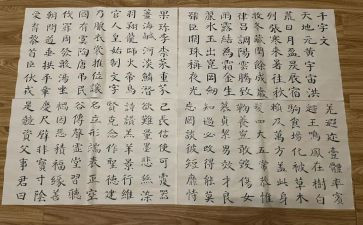 千字文
天地玄黃宇宙洪
荒日月盈昃辰宿
列張寒來暑往秋
收冬藏閏餘成歲
律呂調陽雲騰致
雨露結為霜金生
麗水玉出崑岡劍
號巨闕珠稱夜光
果珍李柰菜重芥
薑海鹹河淡鱗潛
羽翔龍師火帝鳥
官人皇始制文字
乃服衣裳推位讓
國有虞陶唐弔民
伐罪周發殷湯坐
朝問道垂拱平章
愛育黎首臣伏戎
羌遐邇壹體率賓
歸王鳴鳳在樹白
駒食場化被草木
賴及萬方蓋此身
髮四大五常恭惟
鞠養豈敢毀傷女
慕貞絜男效才良
知過必改得能莫
忘罔談彼短靡恃
己長信使可覆器
欲難量墨悲絲染
詩讚羔羊景行維
賢克念作聖德建
名立形端表正空
谷傳聲虛堂習聽
禍因惡積福緣善
慶尺璧非寶寸陰
是競資父事君曰